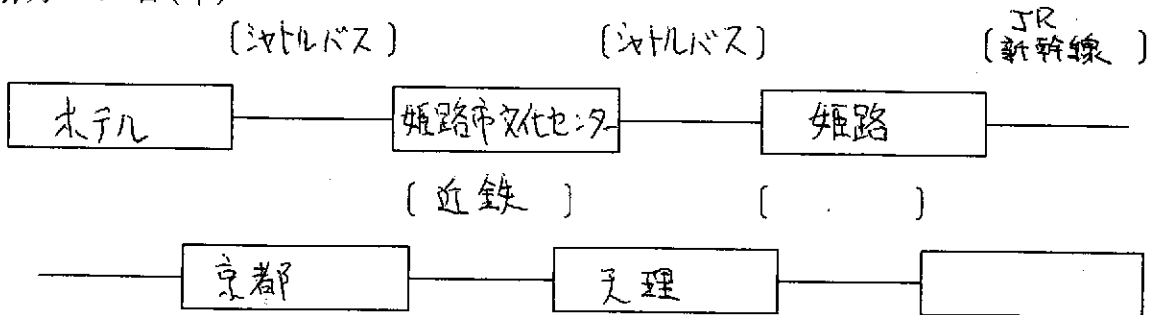 (シャトルバス) (シャトルバス) (JR新幹線)
ホテル 姫路市文化センター 姫路
(近鉄) ( )
京都 天理